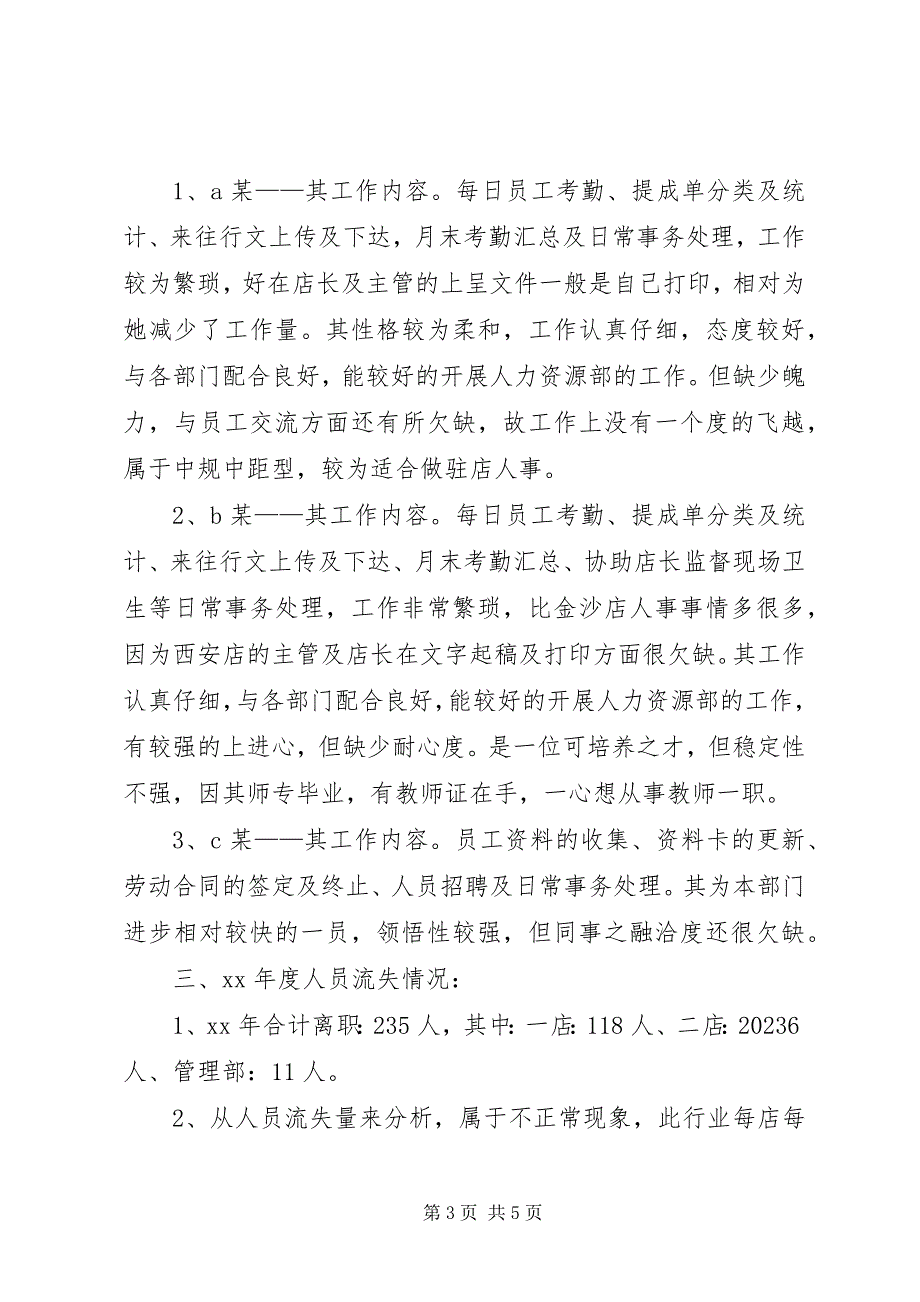 1、a 某——其工作内容。每日员工考勤、提成单分类及统
计、来往行文上传及下达，月末考勤汇总及日常事务处理，工作
较为繁琐，好在店长及主管的上呈文件一般是自己打印，相对为
她减少了工作量。其性格较为柔和，工作认真仔细，态度较好，
与各部门配合良好，能较好的开展人力资源部的工作。但缺少魄
力，与员工交流方面还有所欠缺，故工作上没有一个度的飞越，
属于中规中距型，较为适合做驻店人事。
2、b 某——其工作内容。每日员工考勤、提成单分类及统
计、来往行文上传及下达、月末考勤汇总、协助店长监督现场卫
生等日常事务处理，工作非常繁琐，比金沙店人事事情多很多，
因为西安店的主管及店长在文字起稿及打印方面很欠缺。其工作
认真仔细，与各部门配合良好，能较好的开展人力资源部的工作，
有较强的上进心，但缺少耐心度。是一位可培养之才，但稳定性
不强，因其师专毕业，有教师证在手，一心想从事教师一职。
3、c 某——其工作内容。员工资料的收集、资料卡的更新、
劳动合同的签定及终止、人员招聘及日常事务处理。其为本部门
进步相对较快的一员，领悟性较强，但同事之融洽度还很欠缺。
三、xx 年度人员流失情况：
1、xx 年合计离职：235 人，其中：一店：118 人、二店：20236
人、管理部：11 人。
2、从人员流失量来分析，属于不正常现象，此行业每店每
第 3 页 共 5 页